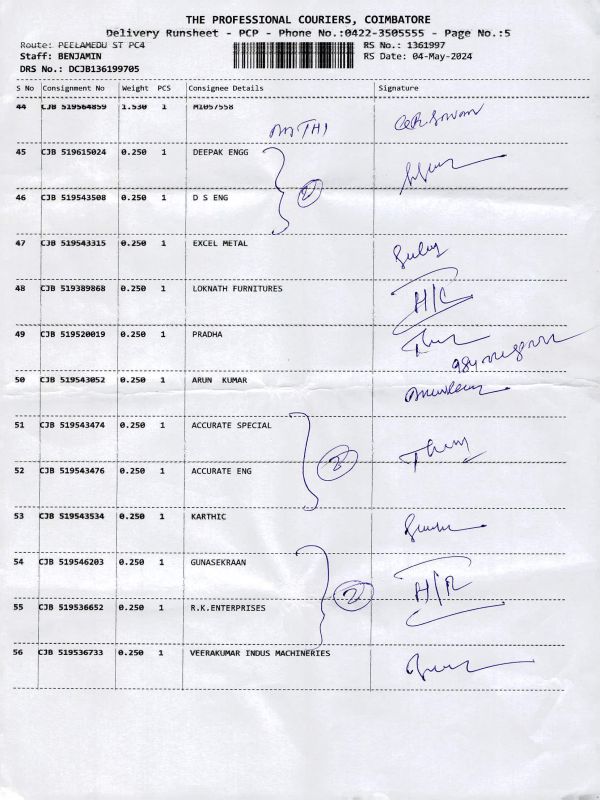 THE PROFESSIONAL COURIERS, COIMBATORE
Delivery Runsheet - PCP - Phone No.:0422-3505555 - Page No.:5
Route: PEELAMEDU ST PC4 RS No.: 1361997
Staff: BENJAMIN RS Date: 04-May-2024
DRS No.: DCJB136199705
S No Consignment No Weight PCS Consignee Details Signature
44 CJB 519564859 1.530 1 M1057558
45 CJB 519615024 0.250 1 DEEPAK ENGG
2
46 CJB 519543508 0.250 1 D S ENG
47 CJB 519543315 0.250 1 EXCEL METAL
48 CJB 519389868 0.250 1 LOKNATH FURNITURES
H/C
49 CJB 519520019 0.250 1 PRADHA
50 CJB 519543052 0.250 1 ARUN KUMAR
51 CJB 519543474 0.250 1 ACCURATE SPECIAL
2
52 CJB 519543476 0.250 1 ACCURATE ENG
53 CJB 519543534 0.250 1 KARTHIC
54 CJB 519546203 0.250 1 GUNASEKRAAN
2 H/R
55 CJB 519536652 0.250 1 R.K.ENTERPRISES
56 CJB 519536733 0.250 1 VEERAKUMAR INDUS MACHINERIES